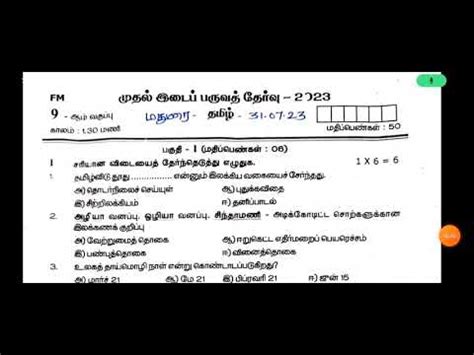 FM முதல் இடைப் பருவத் தேர்வு – 2023
9 - ஆம் வகுப்பு மதுரை - தமிழ் - 31.07.23
காலம் : 1.30 மணி மதிப்பெண்கள் : 50
பகுதி - I (மதிப்பெண்கள் : 06)
I சரியான விடையைத் தேர்ந்தெடுத்து எழுதுக. 1 X 6 = 6
1. தமிழ்விடு தூது .................. என்னும் இலக்கிய வகையைச் சேர்ந்தது.
அ) தொடர்நிலைச் செய்யுள் ஆ) புதுக்கவிதை
இ) சிற்றிலக்கியம் ஈ) தனிப்பாடல்
2. அழியா வனப்பு, ஒழியா வனப்பு, சிந்தாமணி - அடிக்கோடிட்ட சொற்களுக்கான
இலக்கணக் குறிப்பு
அ) வேற்றுமைத் தொகை ஆ) ஈறுகெட்ட எதிர்மறைப் பெயரெச்சம்
இ) பண்புத்தொகை ஈ) வினைத்தொகை
3. உலகத் தாய்மொழி நாள் என்று கொண்டாடப்படுகிறது?
அ) மார்ச் 21 ஆ) மே 21 இ) பிப்ரவரி 21 ஈ) ஜுன் 15